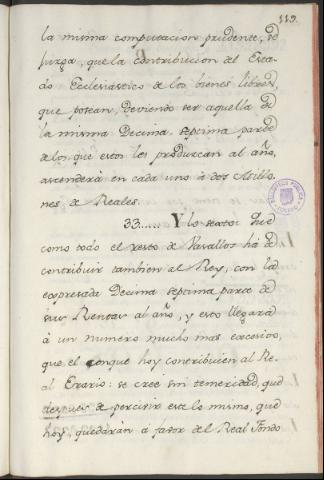 119.
la misma computacion prudente, se
juzga, que la contribucion del Esta-
do Eclesiástico de los bienes libres,
que posean, deviendo ser aquella de
la misma Decima septima parte
de los que estos les produzcan al año,
ascenderá en cada uno à dos Millo-
nes de Reales.
33...... Y lo sexto: Que
como todo el resto de Vasallos ha de
contribuir tambien al Rey, con la
expresada Decima septima parte de
sus Rentas al año, y esto llegará
à un numero mucho mas excesivo,
que el conque hoy contribuien al Re-
al Erario: se cree sin temeridad, que
despues de percivir este lo mismo, que
hoy, quedarán à favor del Real Fondo
BIBLIOTECA PUBLICA
TOLEDO